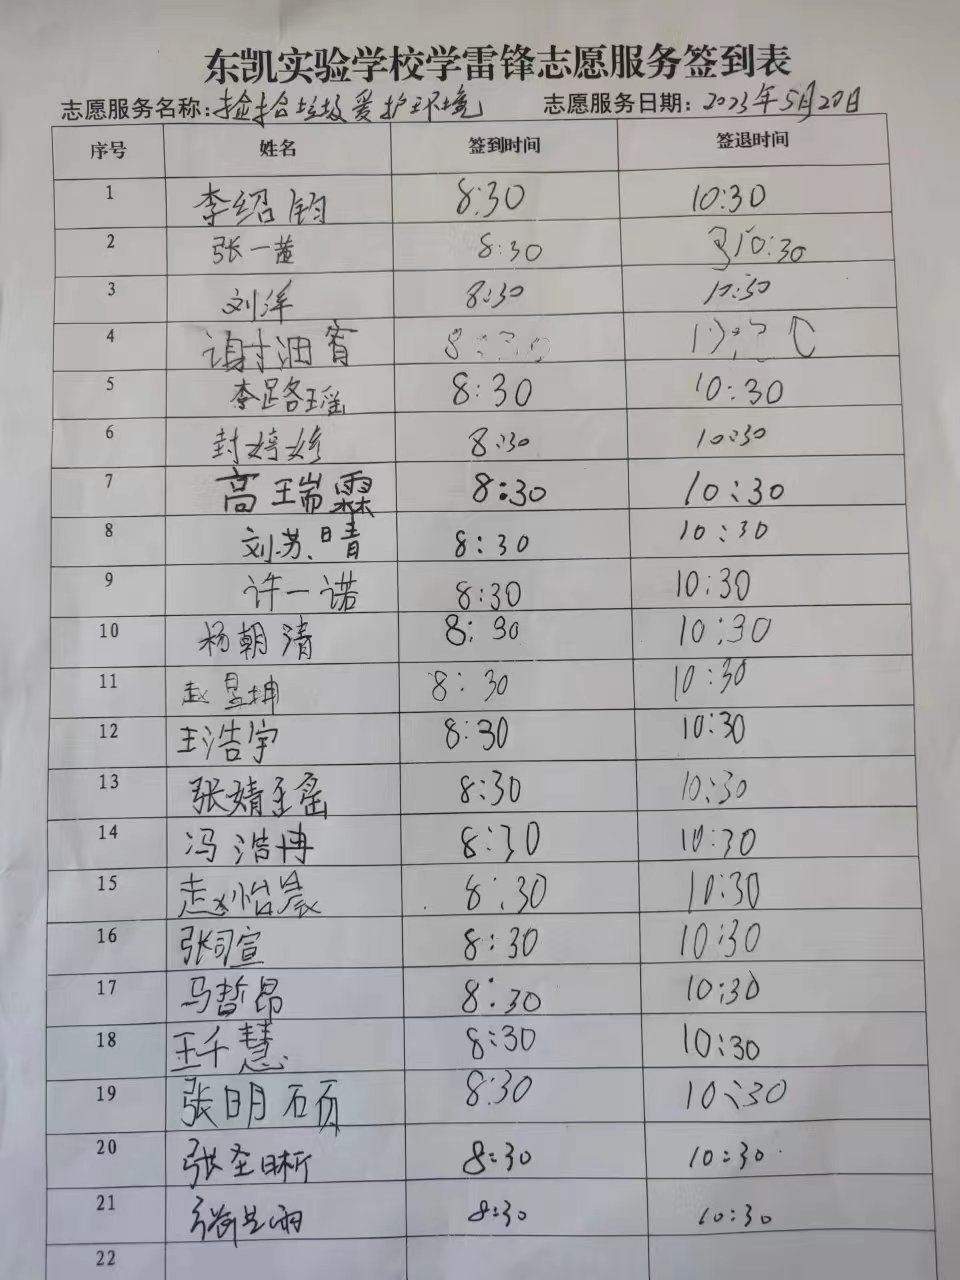 东凯实验学校学雷锋志愿服务签到表
志愿服务名称:捡拾垃圾爱护环境 志愿服务日期:2023年5月20日
序号 姓名 签到时间 签退时间
1 李绍钧 8:30 10:30
2 张一 8:30 10:30
3 刘洋 8:30 10:30
4 谢 8:30
5 李璐瑶 8:30 10:30
6 封婷婷 8:30 10:30
7 高瑞霖 8:30 10:30
8 刘苏晴 8:30 10:30
9 许一诺 8:30 10:30
10 杨朝清 8:30 10:30
11 赵昱坤 8:30 10:30
12 王浩宇 8:30 10:30
13 张婧瑶 8:30 10:30
14 冯浩冉 8:30 10:30
15 赵怡晨 8:30 10:30
16 张司宣 8:30 10:30
17 马哲昂 8:30 10:30
18 王千慧 8:30 10:30
19 张明硕 8:30 10:30
20 张圣晰 8:30 10:30
21 8:30 10:30
22